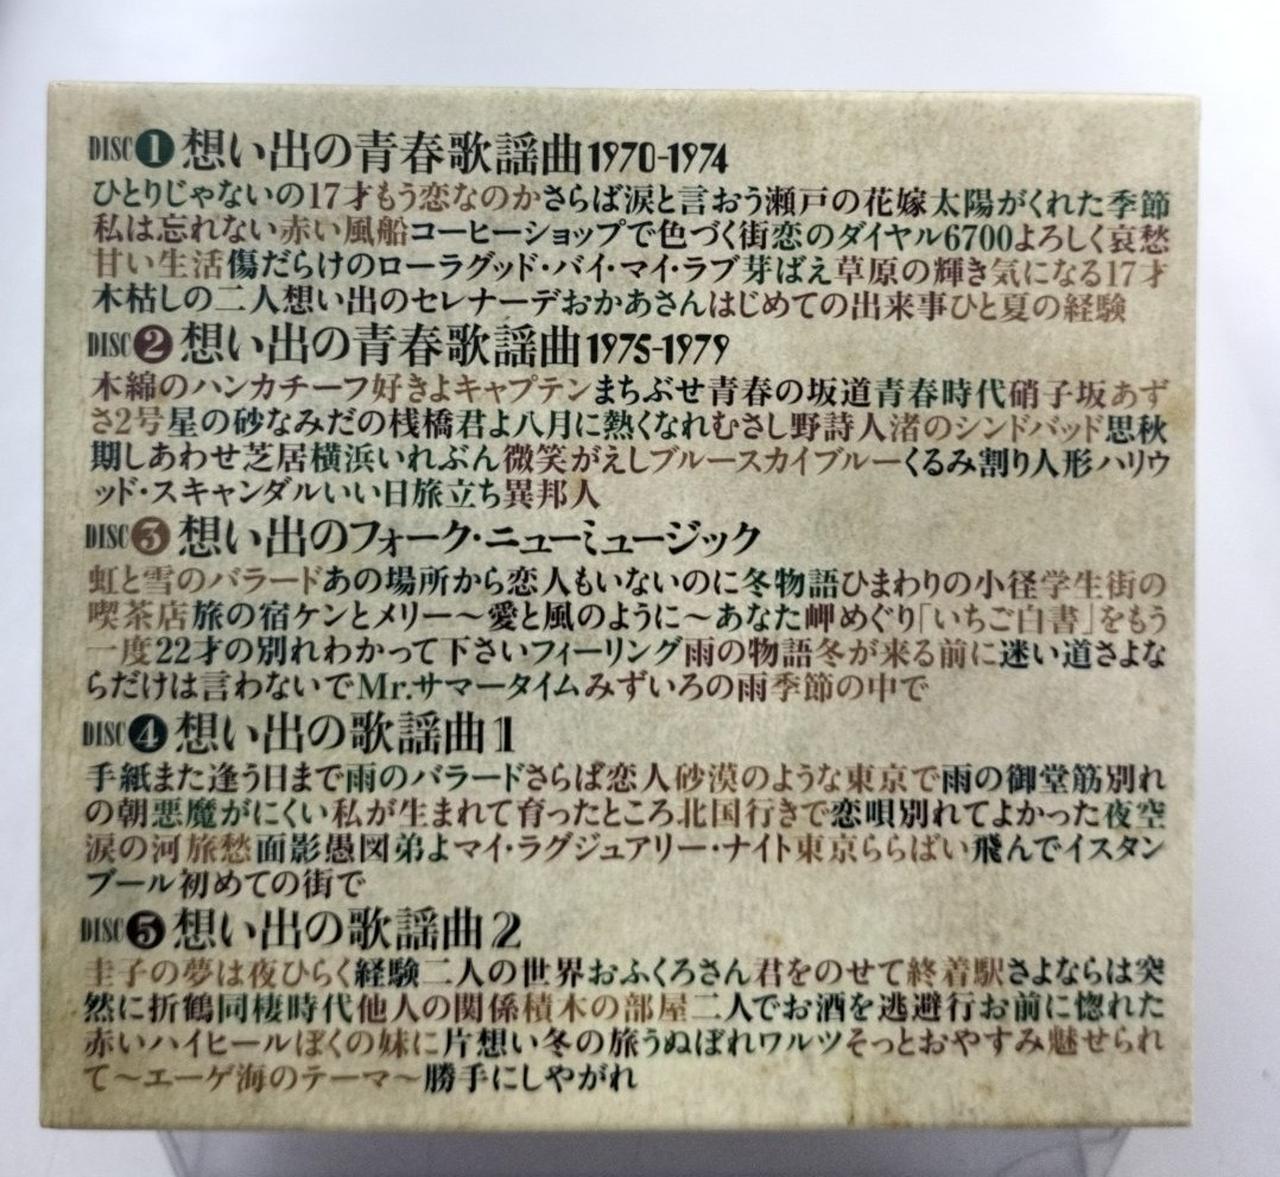 DISC1 想い出の青春歌謡曲1970-1974
ひとりじゃないの17才もう恋なのかさらば涙と言おう瀬戸の花嫁太陽がくれた季節
私は忘れない赤い風船コーヒーショップで色づく街恋のダイヤル6700よろしく哀愁
甘い生活傷だらけのローラグッド・バイ・マイ・ラブ芽ばえ草原の輝き気になる17才
木枯しの二人想い出のセレナーデおかあさんはじめての出来事ひと夏の経験
DISC2 想い出の青春歌謡曲1975-1979
木綿のハンカチーフ好きよキャプテンまちぶせ青春の坂道青春時代硝子坂あず
さ2号星の砂なみだの桟橋君よ八月に熱くなれむさし野詩人渚のシンドバッド思秋
期しあわせ芝居横浜いれぶん微笑がえしブルースカイブルーくるみ割り人形ハリウ
ッド・スキャンダルいい日旅立ち異邦人
DISC3 想い出のフォーク・ニューミュージック
虹と雪のバラードあの場所から恋人もいないのに冬物語ひまわりの小径学生街の
喫茶店旅の宿ケンとメリー〜愛と風のように〜あなた岬めぐり「いちご白書」をもう
一度22才の別れわかって下さいフィーリング雨の物語冬が来る前に迷い道さよな
らだけは言わないでMr.サマータイムみずいろの雨季節の中で
DISC4 想い出の歌謡曲1
手紙また逢う日まで雨のバラードさらば恋人砂漠のような東京で雨の御堂筋別れ
の朝悪魔がにくい私が生まれて育ったところ北国行きで恋唄別れてよかった夜空
涙の河旅愁面影愚図弟よマイ・ラグジュアリー・ナイト東京ららばい飛んでイスタン
ブール初めての街で
DISC5 想い出の歌謡曲2
圭子の夢は夜ひらく経験二人の世界おふくろさん君をのせて終着駅さよならは突
然に折鶴同棲時代他人の関係積木の部屋二人でお酒を逃避行お前に惚れた
赤いハイヒールぼくの妹に片想い冬の旅うぬぼれワルツそっとおやすみ魅せられ
て〜エーゲ海のテーマ〜勝手にしやがれ